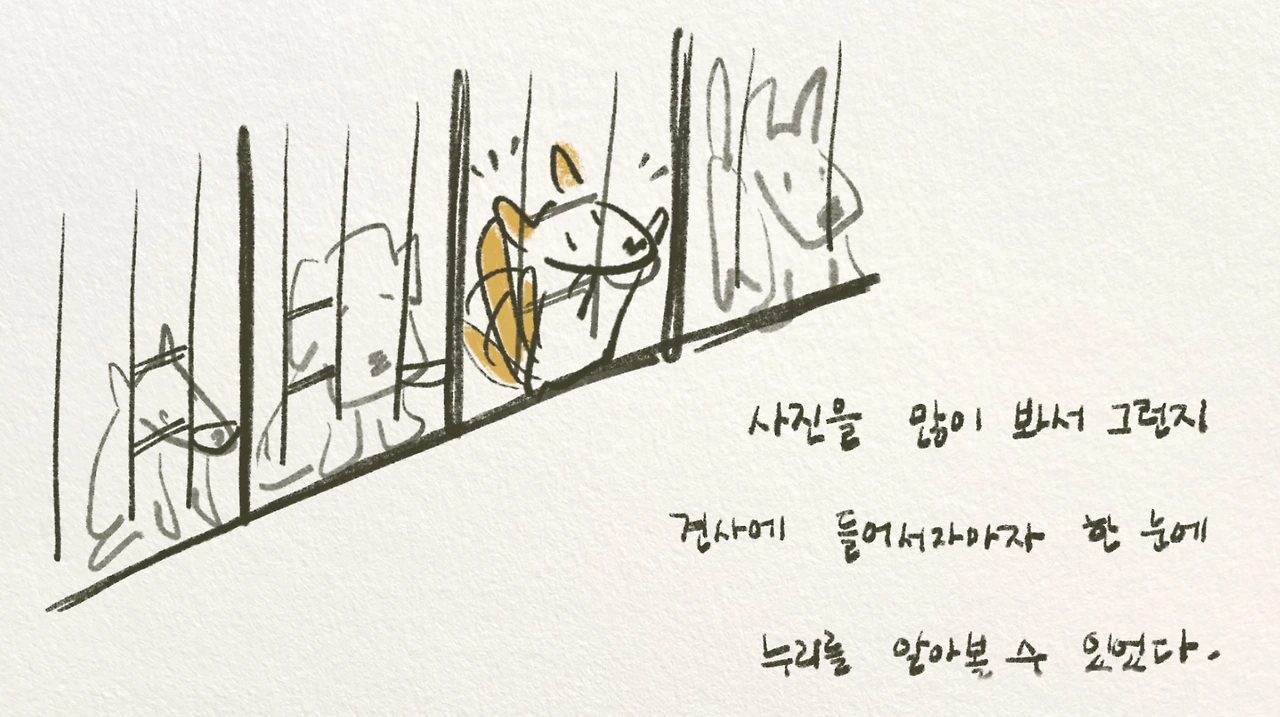 사진을 많이 봐서 그런지
견사에 들어서자마자 한 눈에
누리를 알아볼 수 있었다.